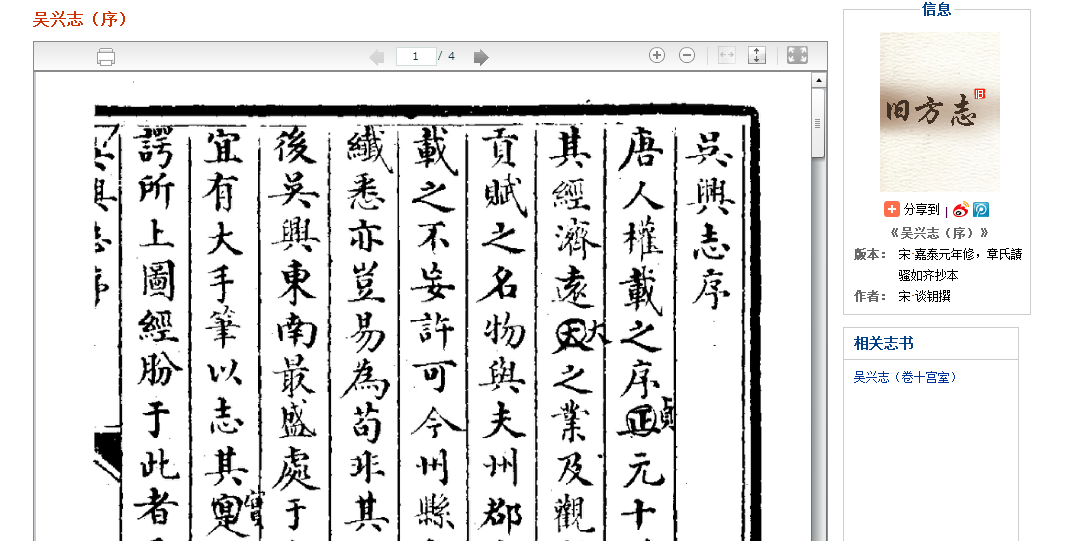 吴兴志（序）
1 / 4
吳興志序
唐人權載之序正貞元十
其經濟遠天大之業及觀
貢賦之名物與夫州郡
載之不妄許可今州縣
纖悉亦豈易為苟非其
後吳興東南最盛處于
宜有大手筆以志其寔實
諤所上圖經昉于此者
吳興志序
信息
旧方志
旧
分享到
《吴兴志（序）》
版本： 宋·嘉泰元年修，章氏讀
骚如齐抄本
作者： 宋·谈钥撰
相关志书
吴兴志（卷十宫室）